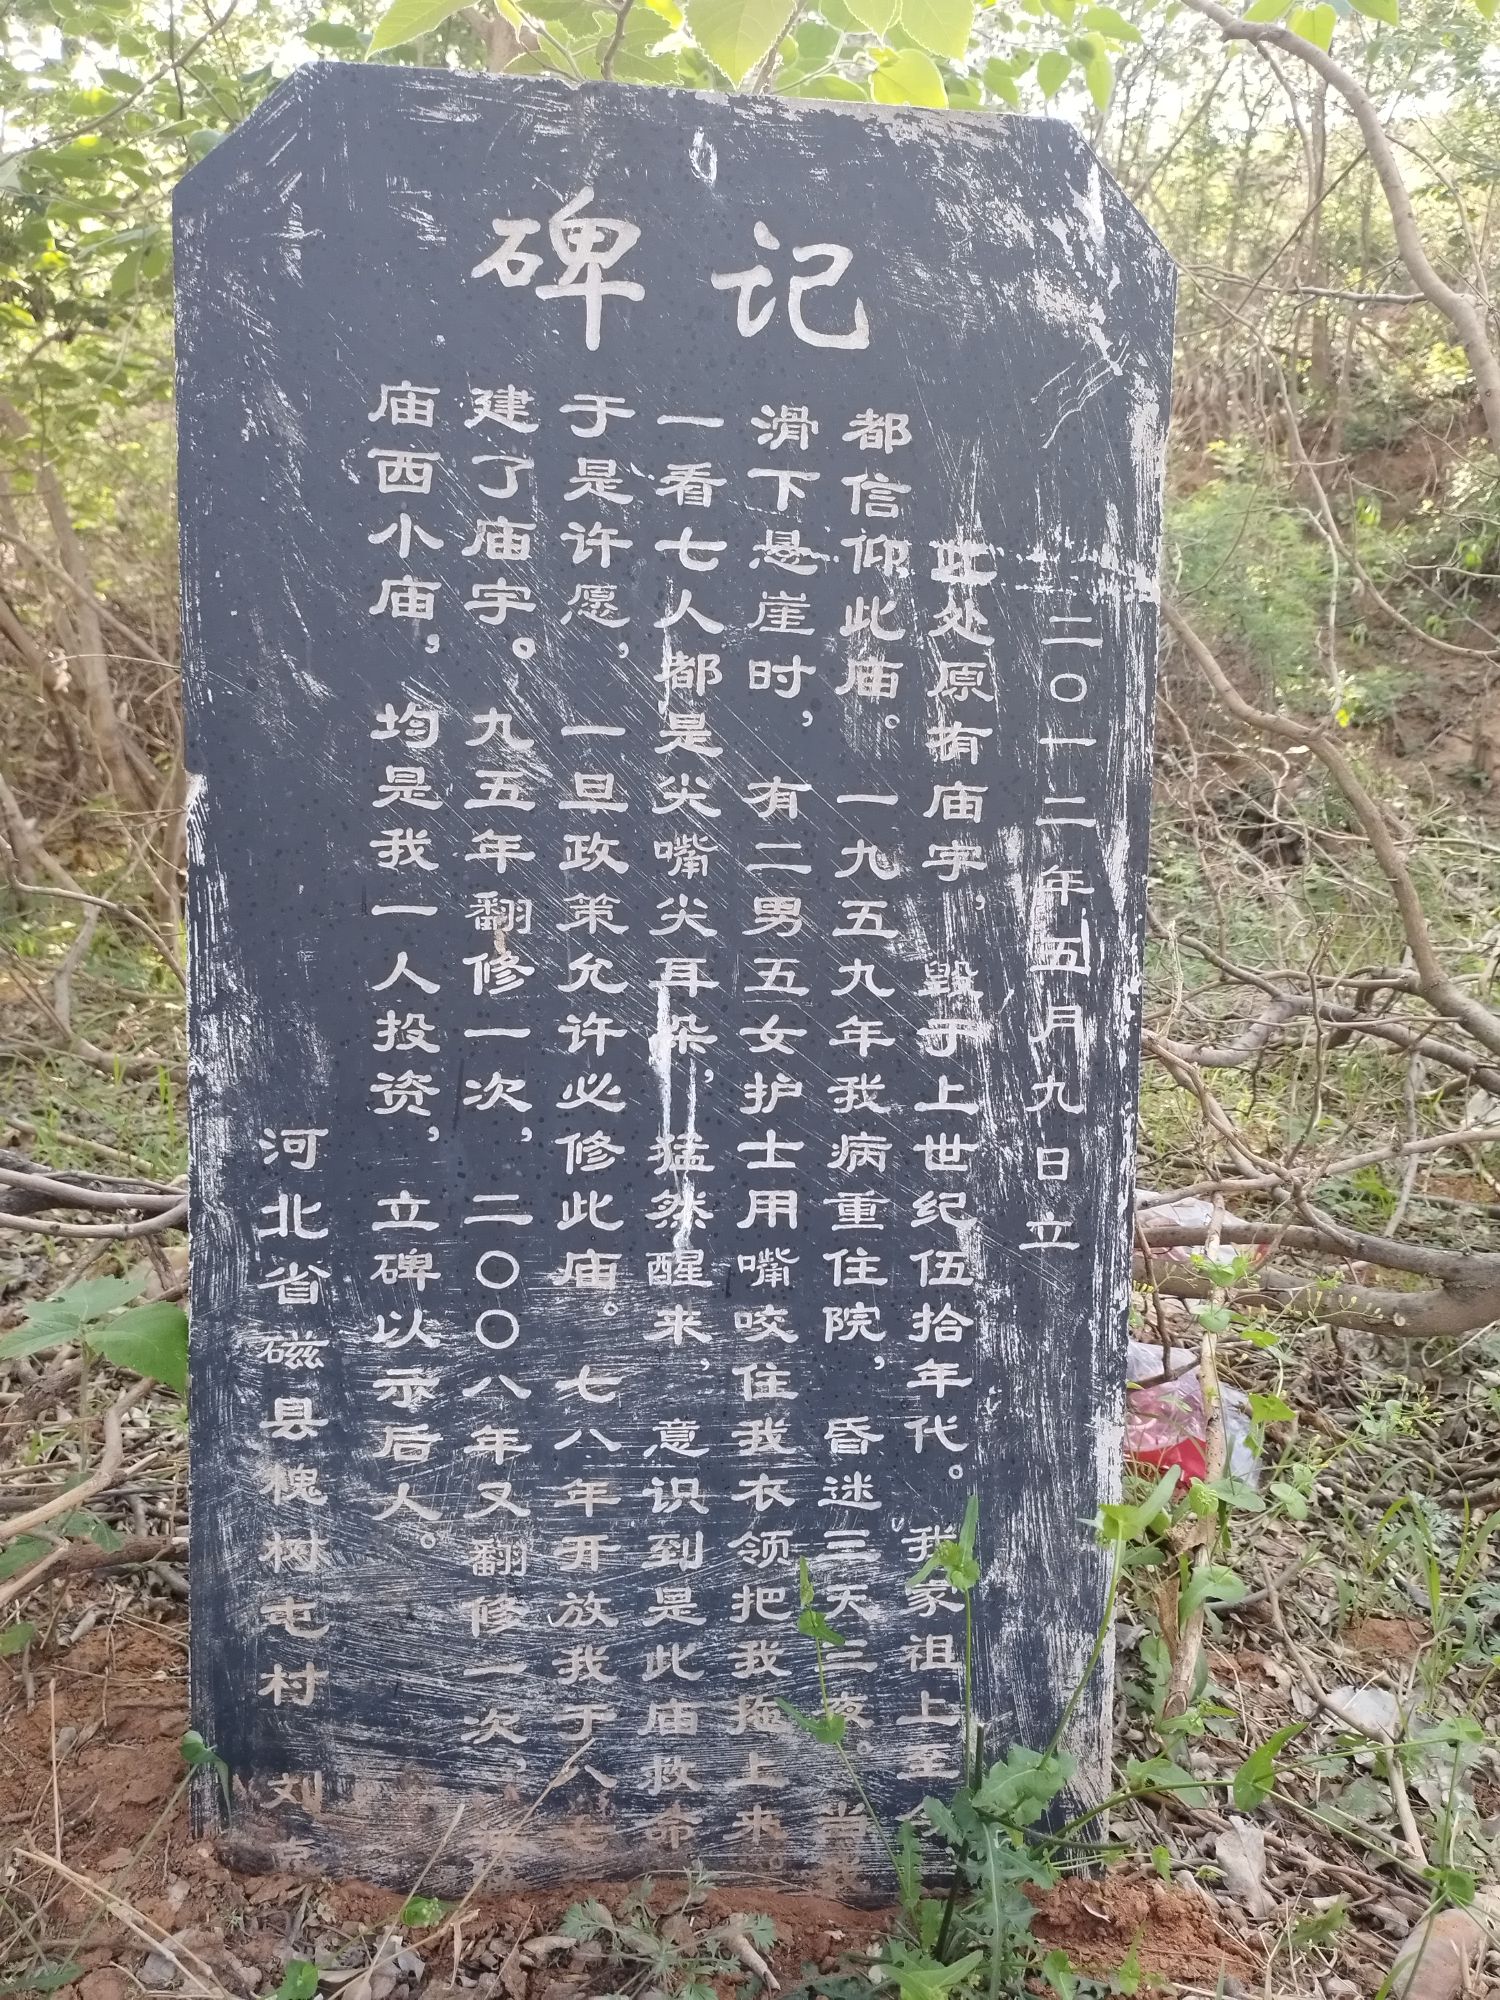 碑记
二〇一二年五月九日立
此处原有庙宇，毁于上世纪伍拾年代。我家祖上至今
都信仰此庙。一九五九年我病重住院，昏迷三天三夜。当
滑下悬崖时，有二男五女护士用嘴咬住我衣领把我拖上来。
一看七人都是尖嘴尖耳朵，猛然醒来，意识到是此庙救命
于是许愿，一旦政策允许必修此庙。七八年开放我于八
建了庙宇。九五年翻修一次，二〇〇八年又翻修一次，
庙西小庙，均是我一人投资，立碑以示后人。
河北省磁县槐树屯村 刘